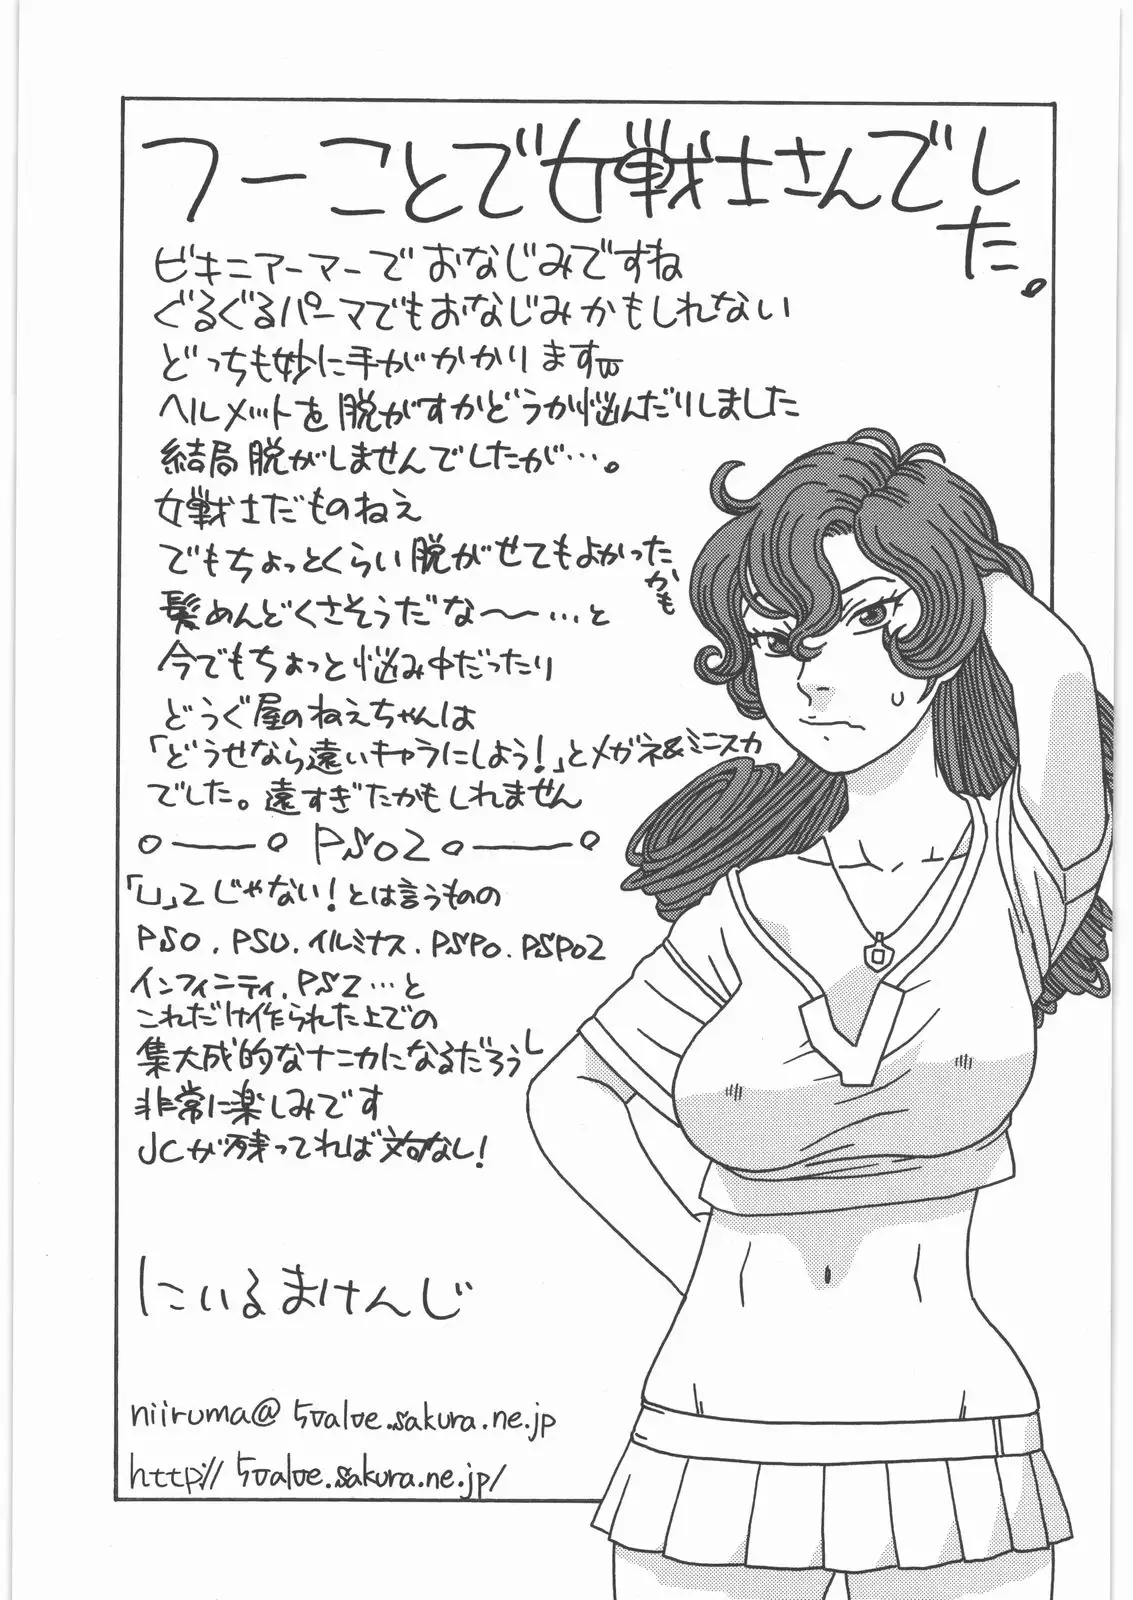 つーことで女戦士さんでした。
ビキニアーマーでおなじみですね
ぐるぐるパーマでもおなじみかもしれない
どっちも妙に手がかかりますw
ヘルメットを脱がすかどうか悩んだりしました
結局脱がしませんでしたが…。
女戦士だものねえ
でもちょっとくらい脱がせてもよかったかも
髪めんどくさそうだな〜…と
今でもちょっと悩み中だったり
どうぐ屋のねえちゃんは
「どうせなら遠いキャラにしよう!」とメガネ&ミニスカ
でした。遠すぎたかもしれません
PSO2
「U」2じゃない!とは言うものの
PSO.PSU.イルミナス.PSPo.PSPo2
インフィニティ.PSZ…と
これだけ作られた上での
集大成的なナニカになるだろうし
非常に楽しみです
JCが残ってれば文句なし!
にいるまけんじ
niiruma@5value.sakura.ne.jp
http://5value.sakura.ne.jp/